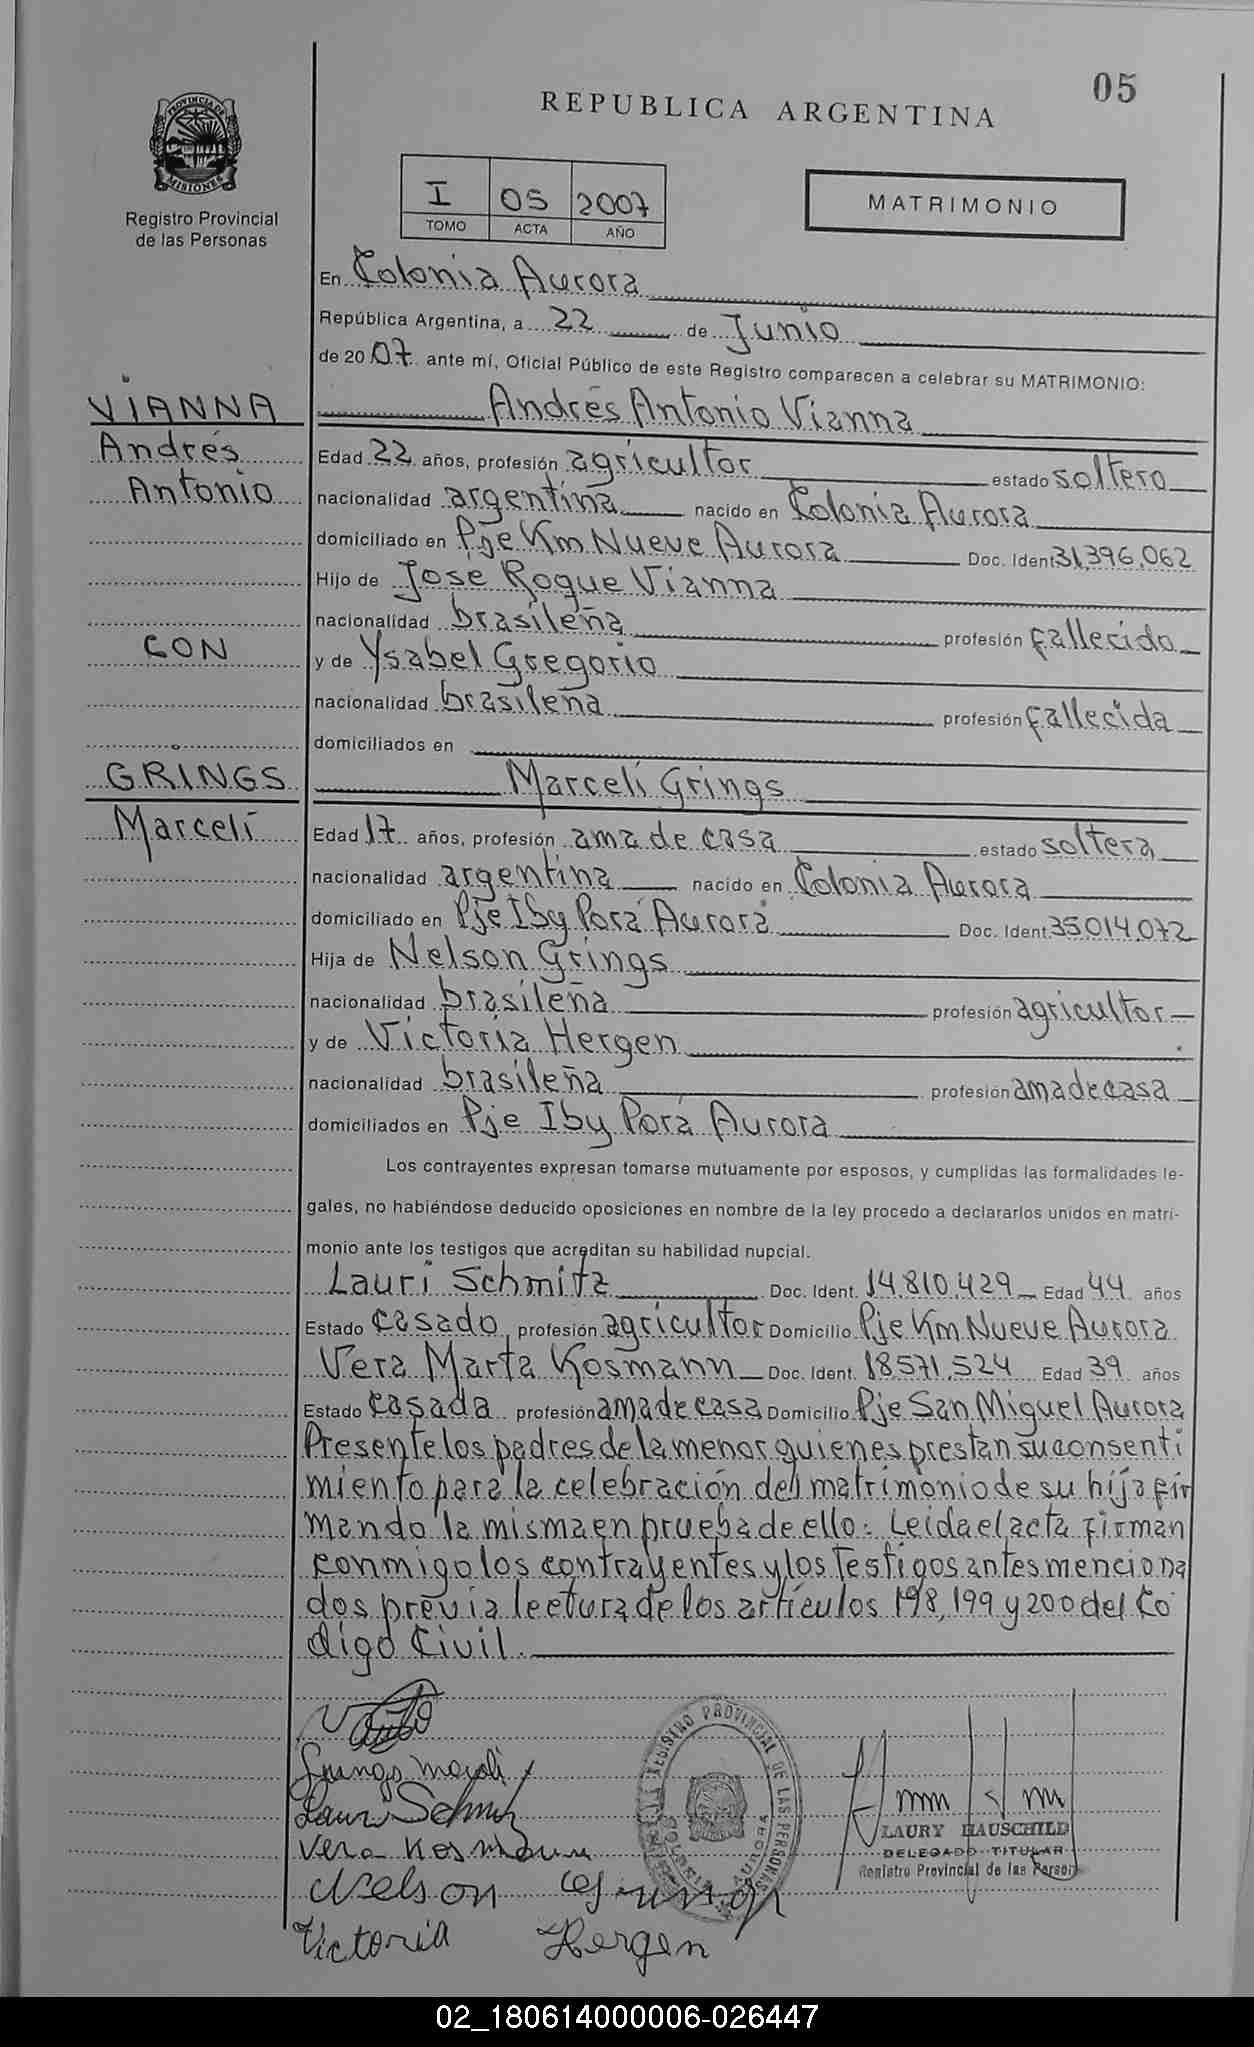 05
REPUBLICA ARGENTINA
PROVINCIA DE
MISIONES
Registro Provincial
de las Personas
I 05 2007
TOMO ACTA AÑO
MATRIMONIO
En Colonia Aurora
República Argentina, a 22 de Junio
de 2007 ante mí, Oficial Público de este Registro comparecen a celebrar su MATRIMONIO:
VIANNA Andrés Antonio Vianna
Andrés Edad 22 años, profesión agricultor estado soltero
Antonio nacionalidad argentina nacido en Colonia Aurora
domiciliado en Pje Km Nueve Aurora Doc. Ident 31,396,062
Hijo de José Roque Vianna
nacionalidad brasileña profesión fallecido
CON y de Ysabel Gregorio
nacionalidad brasileña profesión fallecida
domiciliados en
GRINGS Marcelí Grings
Marcelí Edad 17 años, profesión ama de casa estado soltera
nacionalidad argentina nacido en Colonia Aurora
domiciliado en Pje Iby Porá Aurora Doc. Ident. 35,014,072
Hija de Nelson Grings
nacionalidad brasileña profesión agricultor
y de Victoria Hergen
nacionalidad brasileña profesión ama de casa
domiciliados en Pje Iby Porá Aurora
Los contrayentes expresan tomarse mutuamente por esposos, y cumplidas las formalidades le-
gales, no habiéndose deducido oposiciones en nombre de la ley procedo a declararlos unidos en matri-
monio ante los testigos que acreditan su habilidad nupcial.
Lauri Schmitz Doc. Ident. 14.810.429 Edad 44 años
Estado casado profesión agricultor Domicilio Pje Km Nueve Aurora
Vera Marta Kosmann Doc. Ident. 18571.524 Edad 39 años
Estado casada profesión ama de casa Domicilio Pje San Miguel Aurora
Presente los padres de la menor quienes prestan su consenti
miento para la celebración del matrimonio de su hija fir
mando la misma en prueba de ello. Leida el acta firman
conmigo los contrayentes y los testigos antes menciona
dos previa lectura de los artículos 198, 199 y 200 del Có
digo Civil.
Grings Marceli
Lauri Schmitz
Vera Kosmann
Nelson Grings
Victoria Hergen
REGISTRO PROVINCIAL DE LAS PERSONAS
LAURY HAUSCHILD
DELEGADO TITULAR
Registro Provincial de las Person
02_180614000006-026447